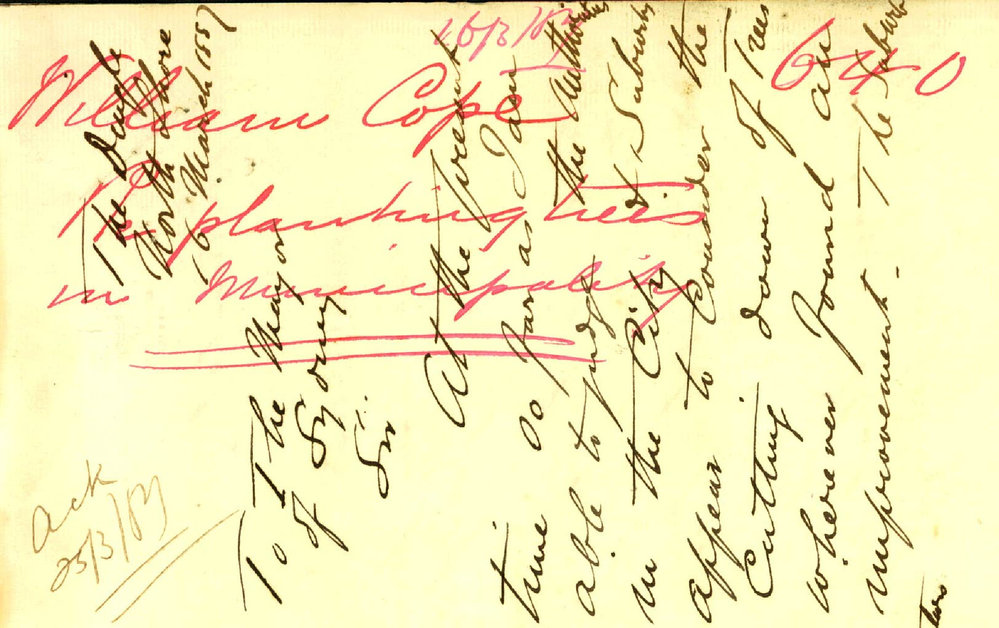 16/3/87
William Cope 640
Re planting trees
in Municipality
Ack
25/3/87
The
North Shore
16 March 1887
To The Mayor
of Sydney
Sir
At the present
time so far as I am
able to judge the Authorities
in the City & Suburbs
appear to consider the
Cutting down of Trees
wherever found an
improvement. The Suburb